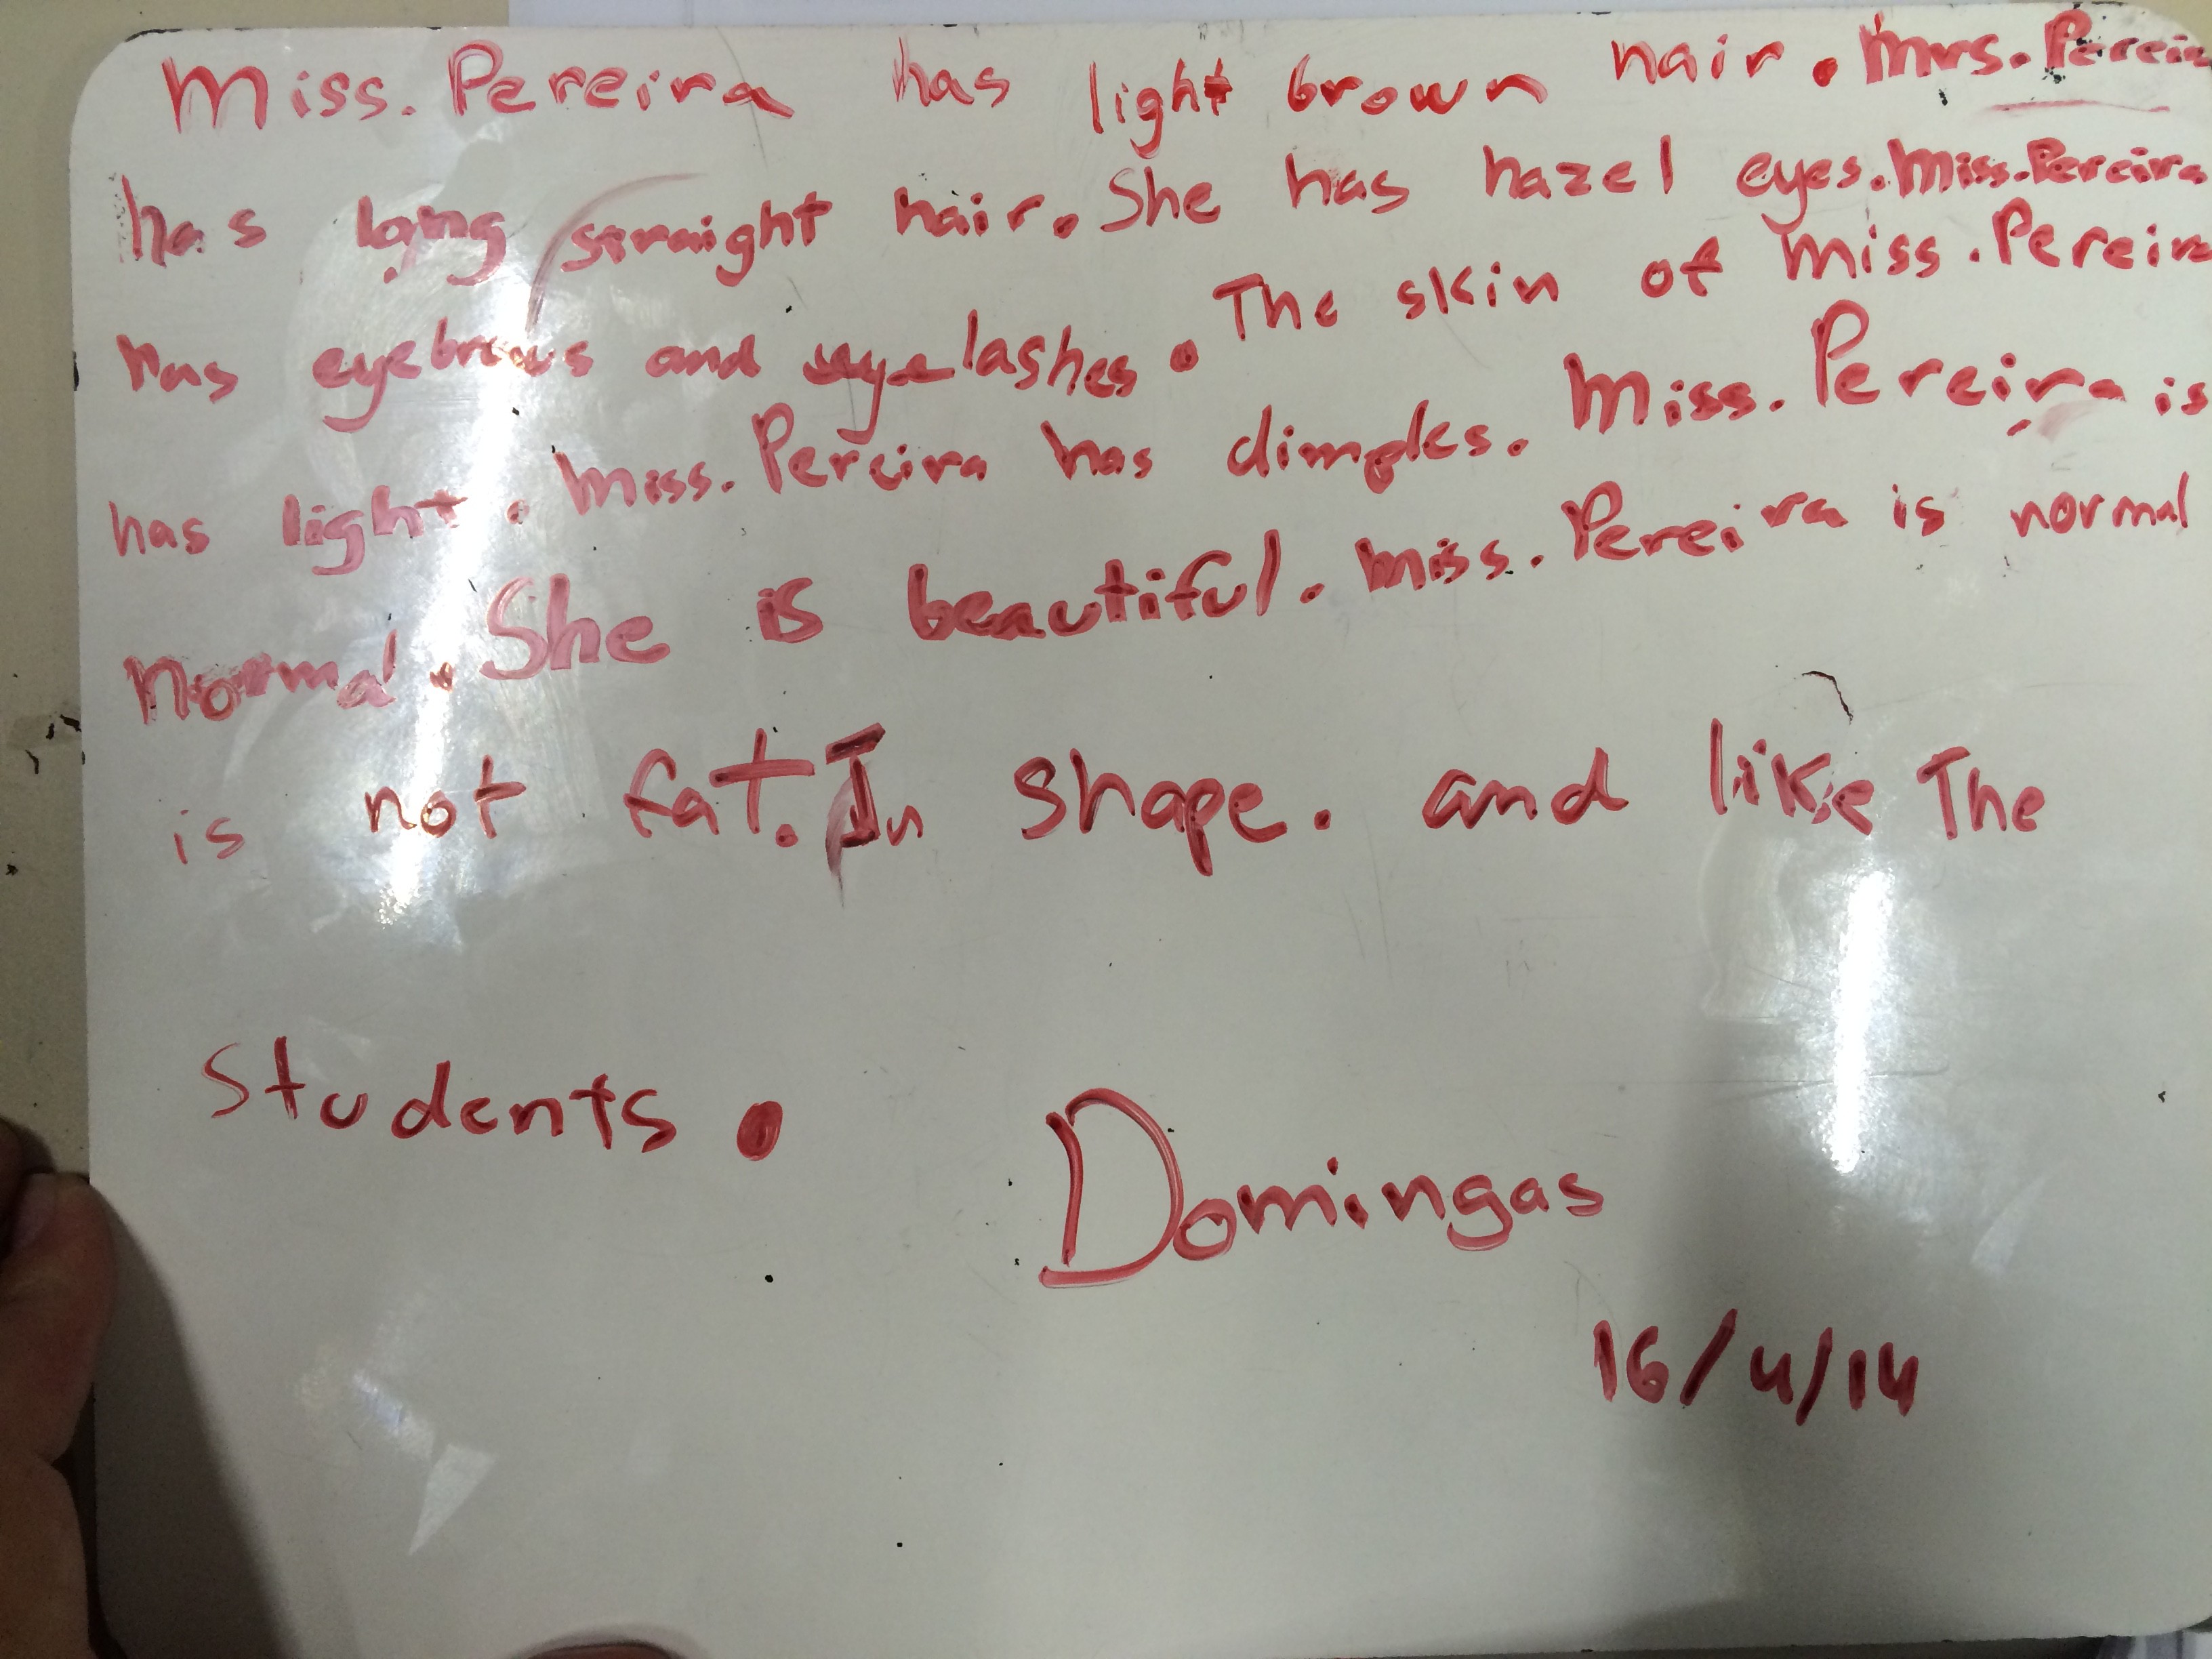 Miss. Pereira has light brown hair. Mrs. Pereira
has long straight hair. She has hazel eyes. Miss. Pereira
has eyebrows and eyelashes. The skin of Miss. Pereira
has light. Miss. Pereira has dimples. Miss. Pereira is
normal. She is beautiful. Miss. Pereira is normal
is not fat. In shape. and like The
students.
Domingas
16/4/14